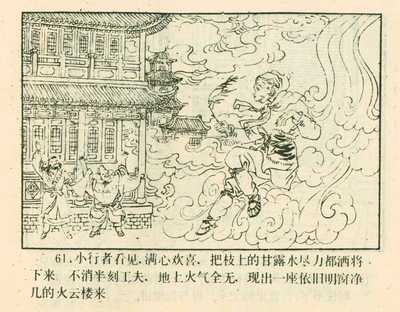 61.小行者看见,满心欢喜,把枝上的甘露水尽力都洒将
下来 不消半刻工夫,地上火气全无,现出一座依旧明窗净
几的火云楼来